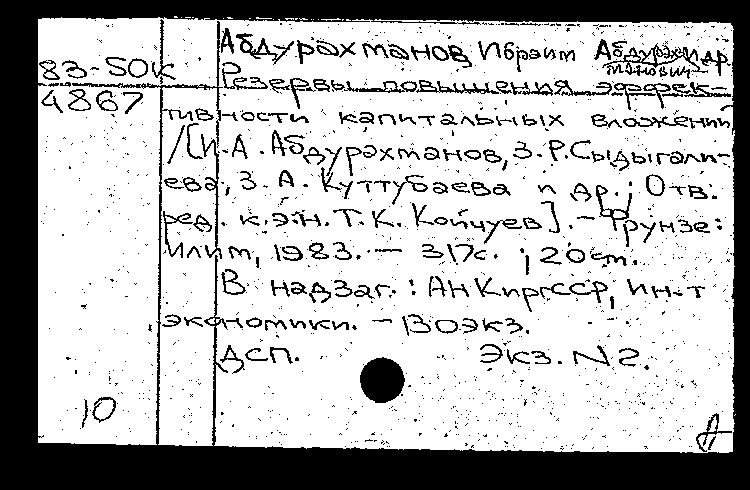 Абдурахманов Ибраим Абдурахманович и др
83-50К
Резервы повышения эффек-
4867
тивности капитальных вложений
/[И.А. Абдурахманов, З.Р. Сыдыгали-
ева, З.А. Куттубаева и др.; Отв.
ред. к.э.н. Т.К. Койчуев]. - Фрунзе:
Илим, 1983. - 317с. ; 20см.
В надзаг.: АН КиргССР, Ин-т
экономики. - 130экз.
ДСП. Экз. N 2.
10
А